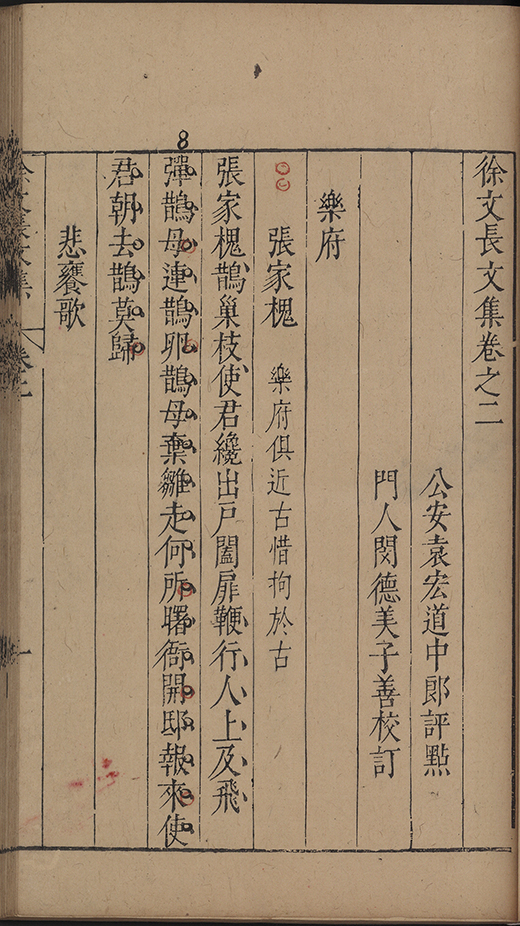 8
徐文長文集卷之二
公安袁宏道中郎評點
門人閔德美子善校訂
樂府
張家槐 樂府俱近古惜拘於古
張家槐鵲巢枝使君纔出戸闔扉鞭行人上及飛
彈鵲母連鵲卵鵲母棄雛走何所曙衙開邸報來使
君朝去鵲莫歸
悲饔歌